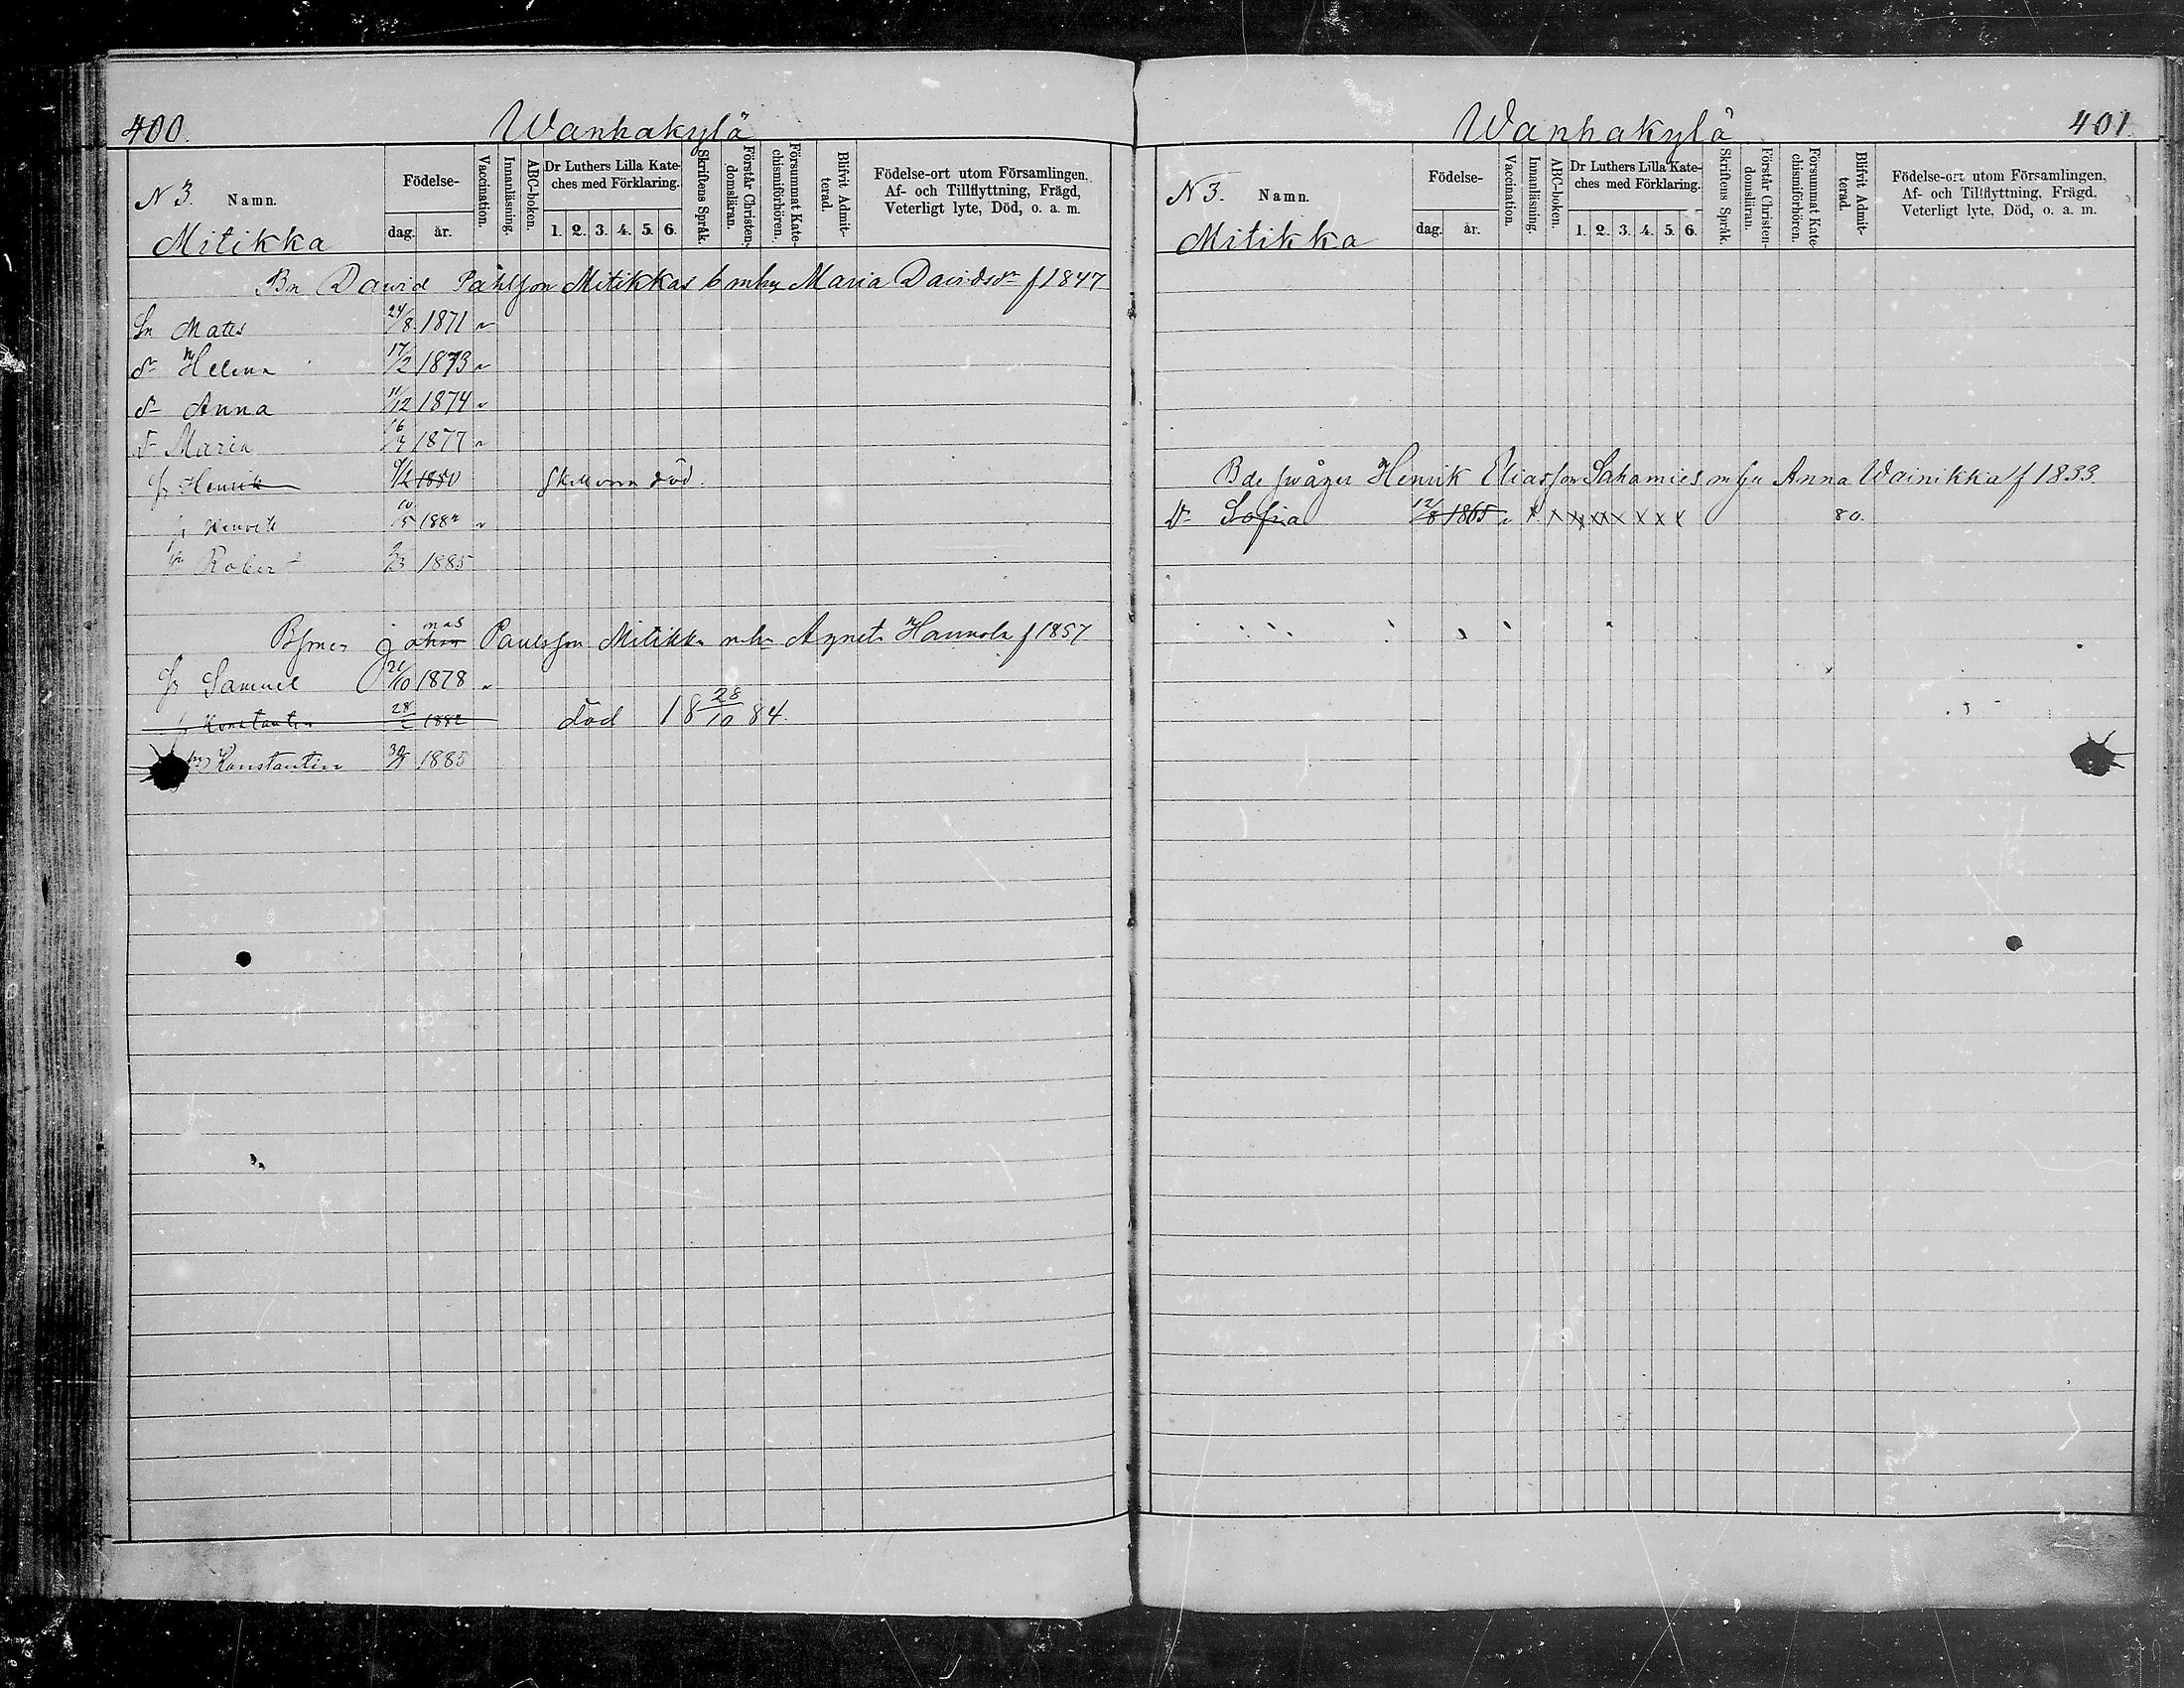 400.
Wanhakylä
N 3. Namn.
Mitikka
Födelse-
dag. år.
Vaccination.
Innanläsning.
ABC-boken.
Dr Luthers Lilla Kate-
ches med Förklaring.
1. 2. 3. 4. 5. 6.
Skriftens Språk.
Förstår Christen-
domsläran.
Försummat Kate-
chismiförhören.
Blifvit Admit-
terad.
Födelse-ort utom Församlingen,
Af- och Tillflyttning, Frägd,
Veterligt lyte, Död, o. a. m.
Bn David Påhlson Mitikkas b mhu Maria Davidsdr f 1847
Sn Mats 24/8 1871 v
dr Helena 17/2 1873 v
dr Anna 11/12 1874 v
dr Maria 16/7 1877 v
sn Henrik 9/2 1880 död.
sn Henrik 10/5 1882 v
sn Robert 2/3 1885
Johan mas Paulsson Mitikka mhu Agneta Hannola f 1857
sn Samuel 21/10 1878 v
sn Konstantin 28/2 1882 död 18 28/10 84.
sn Konstantin 30/8 1885
Wanhakylä
401.
N 3. Namn.
Mitikka
Födelse-
dag. år.
Vaccination.
Innanläsning.
ABC-boken.
Dr Luthers Lilla Kate-
ches med Förklaring.
1. 2. 3. 4. 5. 6.
Skriftens Språk.
Förstår Christen-
domsläran.
Försummat Kate-
chismiförhören.
Blifvit Admit-
terad.
Födelse-ort utom Församlingen,
Af- och Tillflyttning, Frägd,
Veterligt lyte, Död, o. a. m.
Bde swåger Henrik Eliasson Sahamies m hu Anna Wainikka f 1833.
dr Sofia 12/8 1865 v x x x x x x x x x 80.